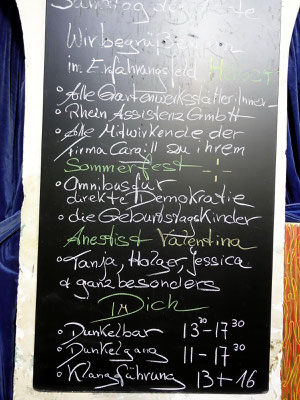 Samstag der
Wir begrüßen
im Erfahrungsfeld
° Alle Gartenwerkstattler:innen
° Rhein Assistenz GmbH
° Alle Mitwirkende der
Firma Cargill zu ihrem
Sommerfest
° Omnibus für
direkte Demokratie
° die Geburtstagskinder
Anestist Valentina
° Tanja, Holger, Jessica
& ganz besonders
Dich
° Dunkelbar 13³⁰-17³⁰
° Dunkelgang 11-17³⁰
° Klangführung 13+16